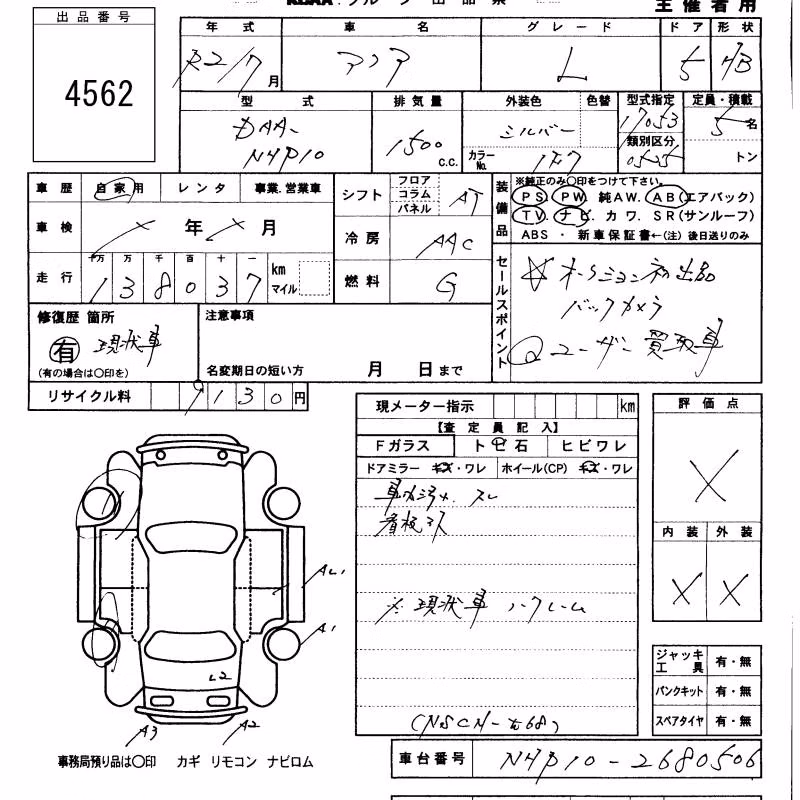 出品番号
4562
主催者用
年式 車名 グレード ドア 形状
R2/7月 アクア L 5 HB
型式 排気量 外装色 色替 型式指定 定員・積載
DAA-NHP10 1500 c.c. シルバー 17053 5名
カラーNo. 1F7 類別区分 0525 トン
車歴 自家用 レンタ 事業.営業車
車検 × 年 × 月
走行 十万 万 千 百 十 一
1 3 8 0 3 7 km マイル
シフト フロア コラム パネル AT
冷房 AAC
燃料 G
装備品 ※純正のみ○印をつけて下さい。
PS. PW. 純AW. AB(エアバック)
TV. ナビ. カワ. SR(サンルーフ)
ABS ・ 新車保証書←(注)後日送りのみ
セールスポイント
☆オークション初出品
バックカメラ
◎ユーザー買取車
修復歴 箇所
有 現状車
(有の場合は○印を)
注意事項
名変期日の短い方 月 日まで
リサイクル料 7130円
現メーター指示 km
【査定員記入】
Fガラス トビ石 ヒビワレ
ドアミラー キズ・ワレ ホイール(CP) キズ・ワレ
車内汚れ.スレ
看板跡
※現状車 ハクレーム
(NSCH-T68)
評価点
×
内装 外装
× ×
ジャッキ工具 有・無
パンクキット 有・無
スペアタイヤ 有・無
AL1
A1
L2
A3 A2
事務局預り品は○印 カギ リモコン ナビロム
車台番号 NHP10-2680506